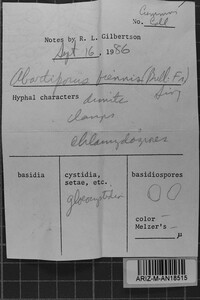 No. Coll
Notes by R. L. Gilbertson
Sept 16, 1986
Abortiporus biennis (Bull.: Fr.)
Sing
Hyphal characters dimitic
clamps
chlamydospores
basidia
cystidia, setae, etc.
gloeocystidia
basidiospores
color —
Melzer's —
μ
ARIZ-M-AN18515